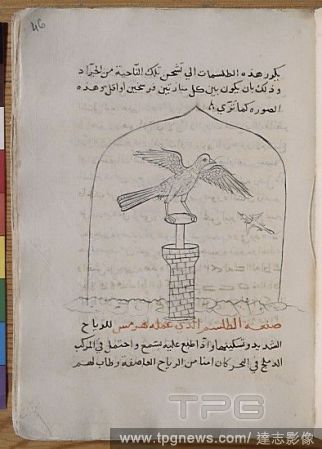 46
يكون هذه الطلسمات التي تشحن تلك الناحية من الجراد
وذلك بان يكون بين كل منارتين فرسخين او اقل وهذه
الصوره كما تري
صفة الطلسم الذي عمله هرمس للرياح
الشديده وتسكينها واذا طبع عليه بشمع واحتمل في المركب
في البحر كان امنا من الرياح العاصفة وطاب لهم
TPG
www.tpgnews.com / 達志影像